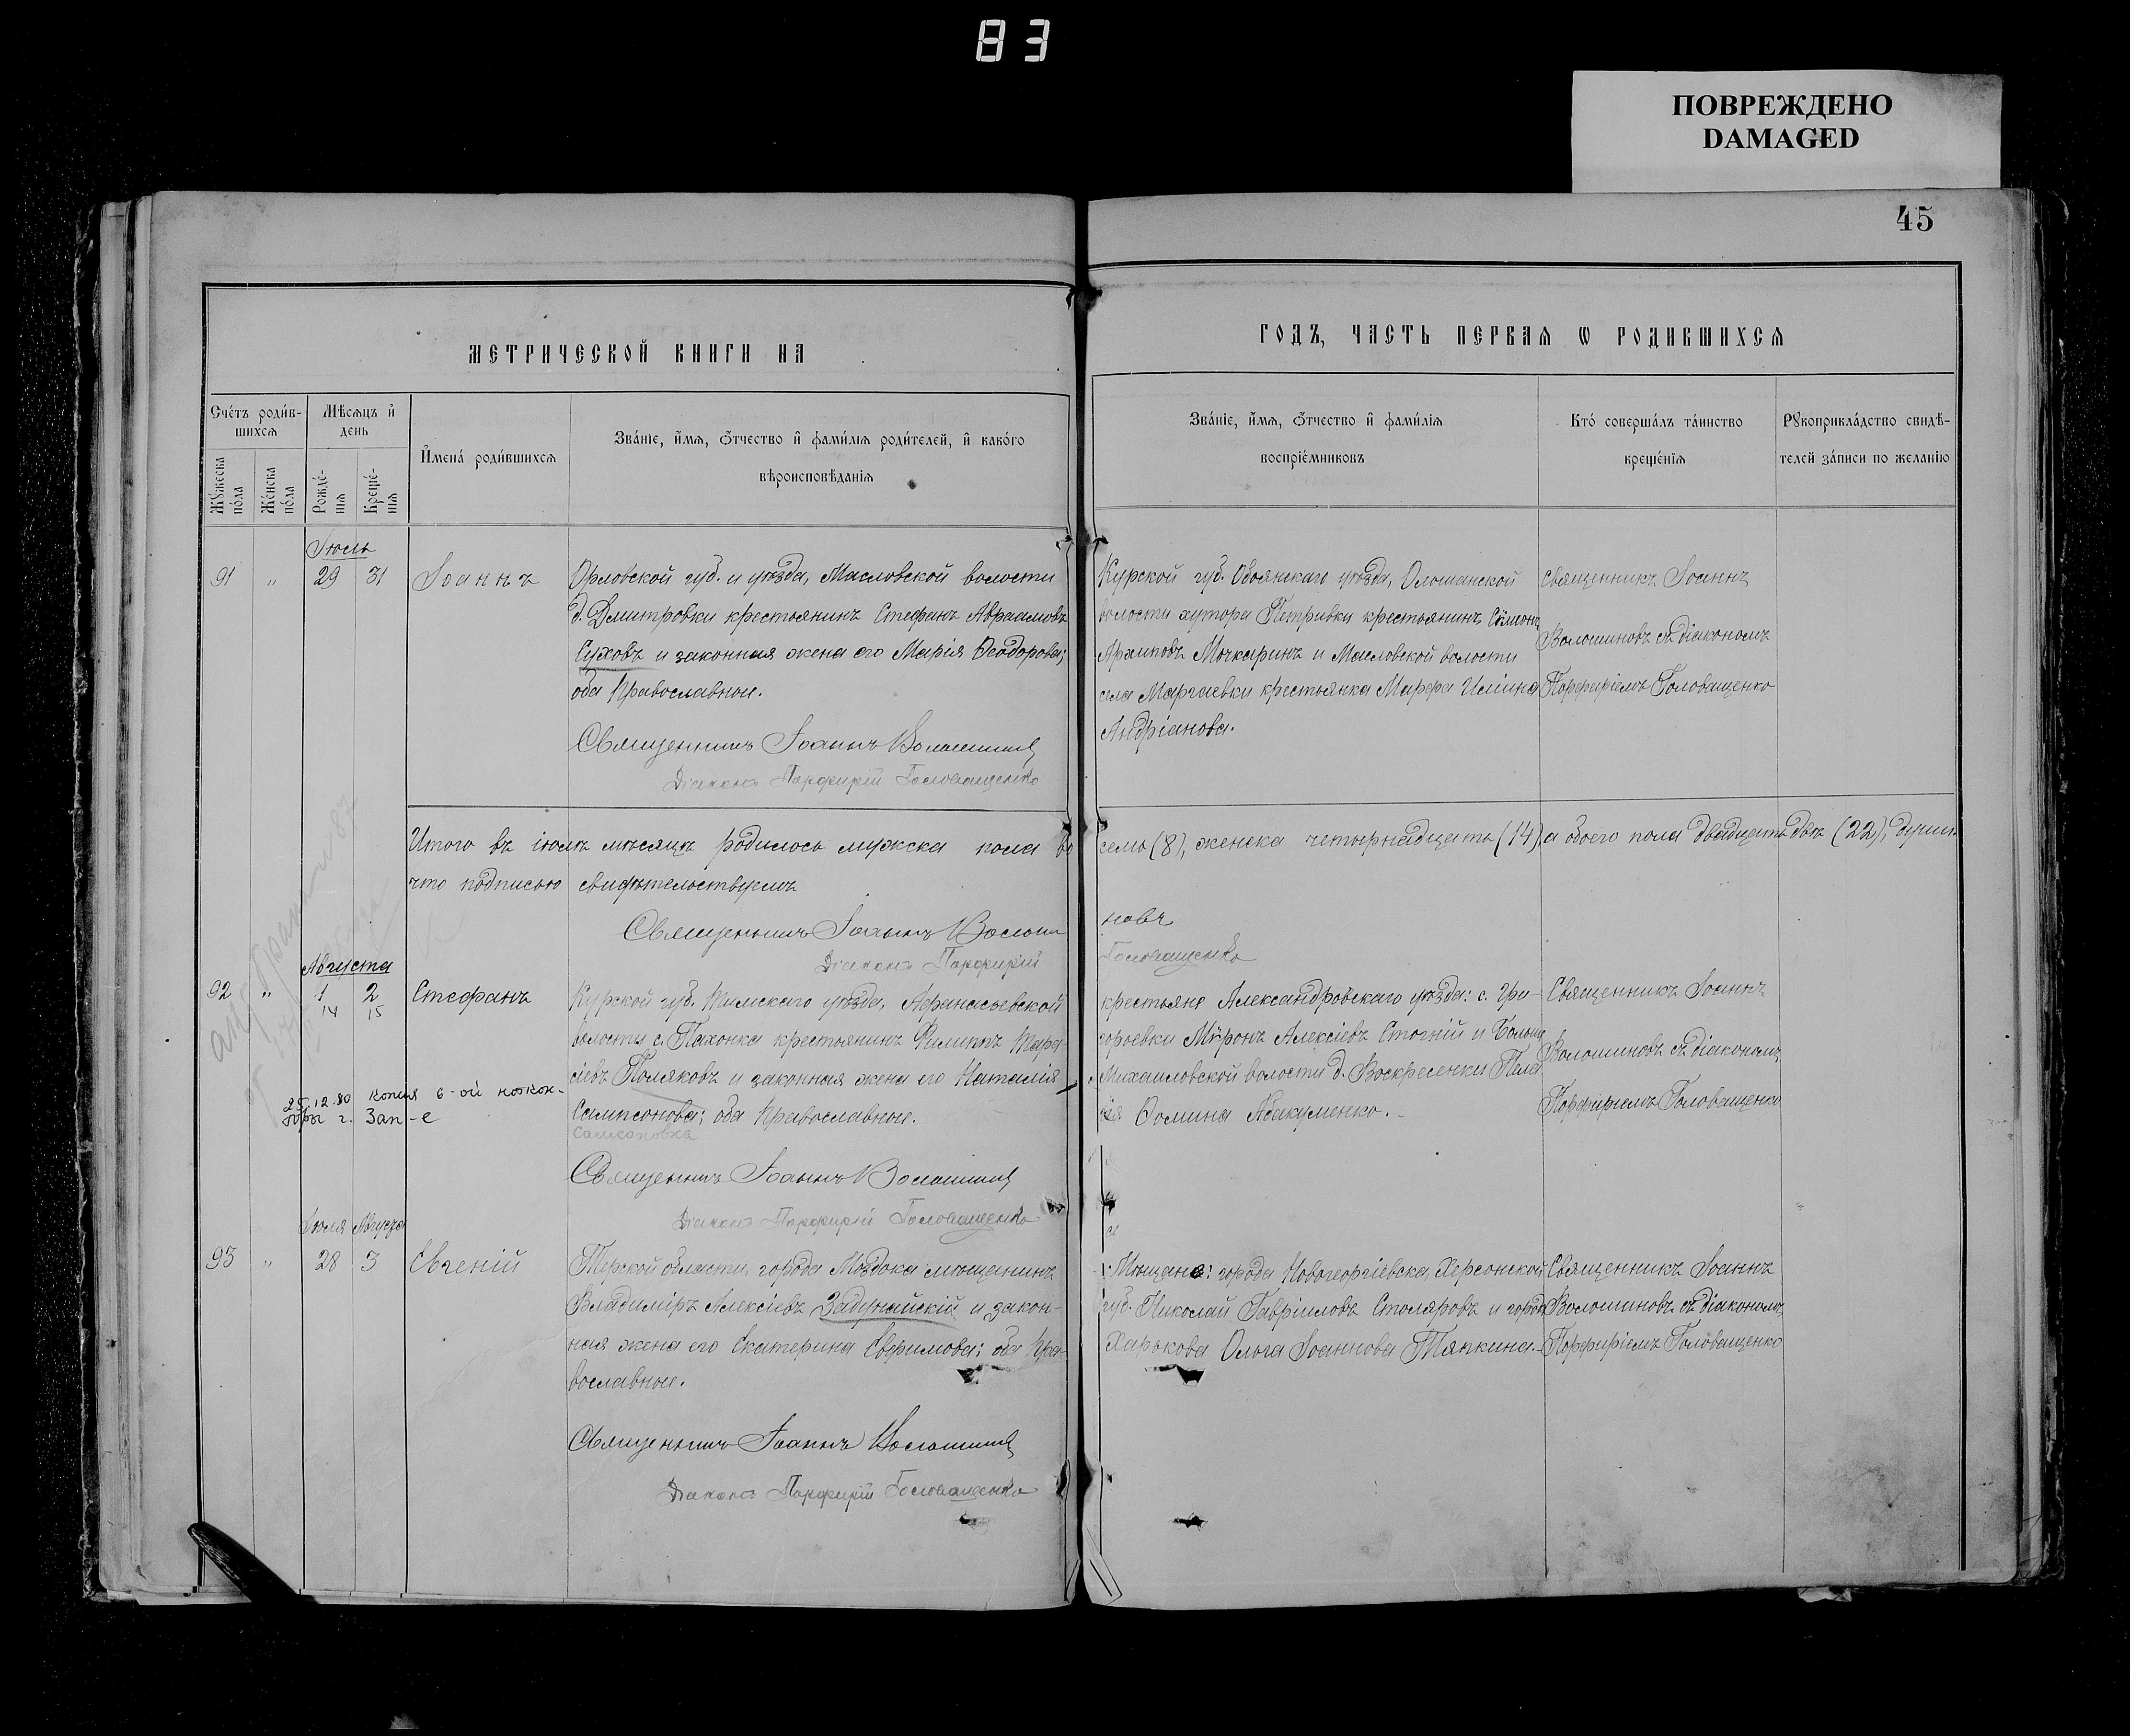 83
ПОВРЕЖДЕНО
DAMAGED
45
МЕТРИЧЕСКОЙ КНИГИ НА
ГОДЪ, ЧАСТЬ ПЕРВАЯ Ѡ РОДИВШИХСЯ
Счетъ родив-
шихся
Мужеска
пола
Женска
пола
Мѣсяцъ и
день
Рожде-
ния
Креще-
ния
Имена родившихся
Званіе, имя, отчество и фамилія родителей, и какого
вѣроисповѣданія
Званіе, имя, отчество и фамилія
воспріемниковъ
Кто совершалъ таинство
крещенія
Рукоприкладство свидѣ-
телей записи по желанію
Іюль
91 " 29 31 Іоаннъ
Орловской губ. и уѣзда, Масловской волости
д. Дмитровки крестьянинъ Стефанъ Авраамовъ
Суховъ и законная жена его Марія Ѳеодорова;
оба Православные.
Священникъ Іоаннъ Волошиновъ
Діаконъ Порфирій Головащенко
Курской губ. Обоянскаго уѣзда,
волости хутора Петривки крестьянинъ Сѵмеонъ
и Масловской волости
села крестьянка Марфа
Андріанова.
Священникъ Іоаннъ
Волошиновъ съ діакономъ
Порфиріемъ Головащенко
Итого въ іюлѣ мѣсяцѣ родилось мужска пола во
семь (8), женска четырнадцать (14), а обоего пола двадцать двѣ (22), души
что подписью свидѣтельствуемъ
Священникъ Іоаннъ Волоши
новъ
Діаконъ Порфирій
Головащенко
Августа
92 " 1 2 Стефанъ
14 15
Курской губ. Тимскаго уѣзда, Афанасьевской
волости с. Пахонка крестьянинъ Филиппъ Тара-
сіевъ Поляковъ и законная жена его Наталія
Сампсонова; оба Православные.
Самсоновна
25.12.80 копия 6-ой ноткон-
торы г. Зап-е
Священникъ Іоаннъ Волошиновъ
Діаконъ Порфирій Головащенко
крестьяне Александровскаго уѣзда: с. Гри-
горьевки Мѵронъ Алексіевъ Стогній и Больше
Михайловской волости д. Воскресенки Пела
гія Ѳомина Абакуменко.
Священникъ Іоаннъ
Волошиновъ съ діакономъ
Порфиріемъ Головащенко
Іюля Августа
93 " 28 3 Евгеній
Терской области, города Моздока мѣщанинъ
Владиміръ Алексіевъ Задунайскій и закон-
ная жена его Екатерина Евфимова; оба Пра-
вославные.
Священникъ Іоаннъ Волошиновъ
Діаконъ Порфирій Головащенко
Мѣщане: города Новогеоргіевска, Херсонской
губ. Николай Гавріиловъ Столяровъ и города
Харькова Ольга Іоаннова Тяпкина.
Священникъ Іоаннъ
Волошиновъ съ діакономъ
Порфиріемъ Головащенко